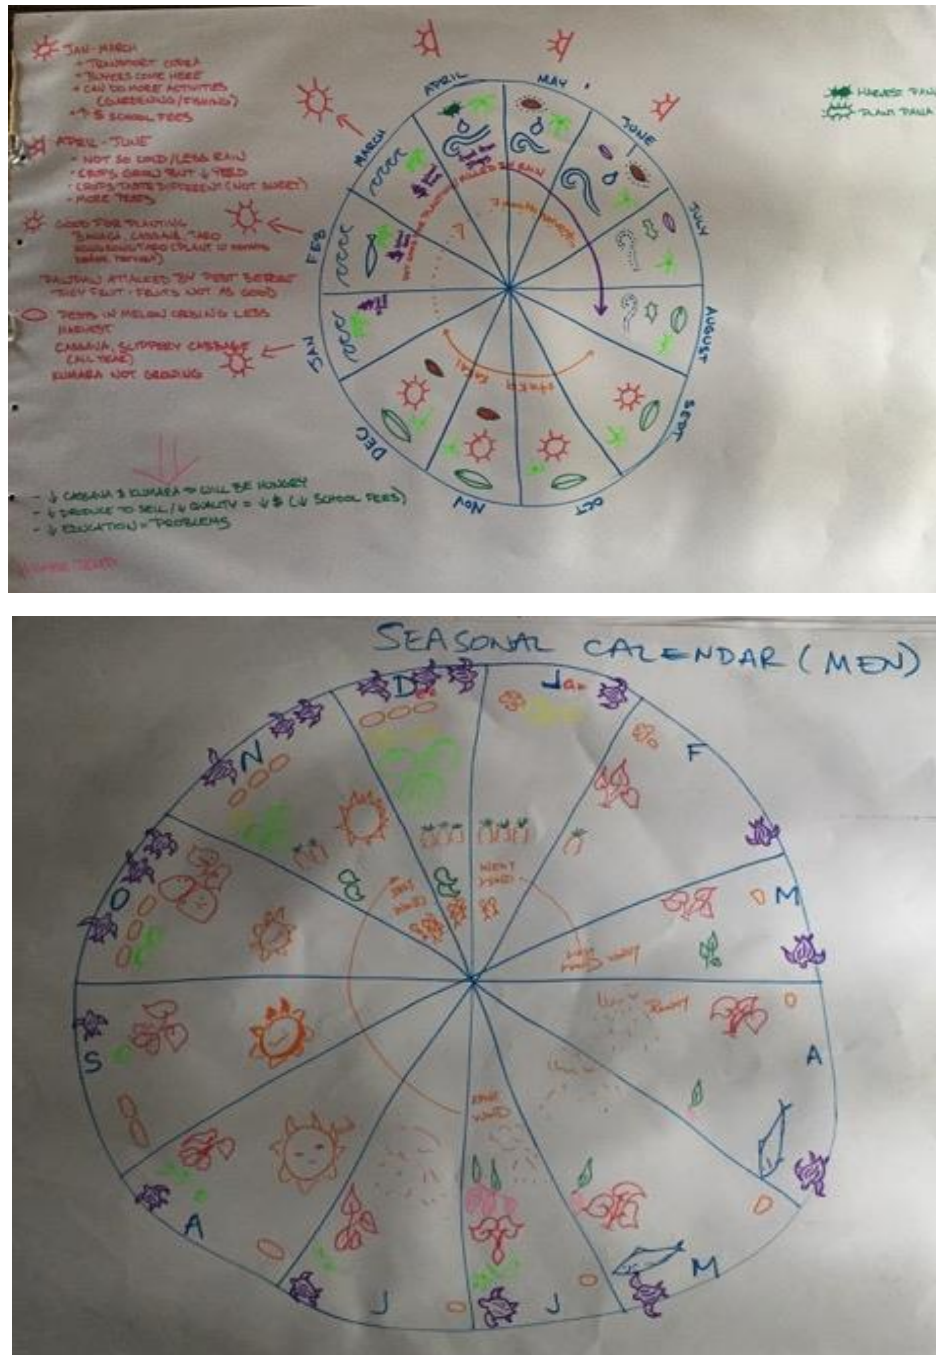 JAN-MARCH
+ TRANSPORT COPRA
+ BUYERS COME HERE
+ CAN DO MORE ACTIVITIES
(GARDENING/FISHING)
+ ↑ $ SCHOOL FEES
APRIL - JUNE
- NOT SO COLD/LESS RAIN
- CROPS GROW BUT ↓ YEILD
- CROPS TASTE DIFFERENT (NOT SWEET)
- MORE PESTS
GOOD FOR PLANTING
BANANA, CASSAVA, TARO
PAWPAW ATTACKED BY PEST BEFORE
THEY FRUIT - FRUITS NOT AS GOOD
PESTS IN MELON CAUSING LESS
HARVEST
CASSAVA, SLIPPERY CABBAGE
(ALL YEAR)
KUMARA NOT GROWING
- ↓ CASSAVA & KUMARA → WILL BE HUNGRY
- ↓ PRODUCE TO SELL/↓ QUALITY = ↓ $ (↓ SCHOOL FEES)
- ↓ EDUCATION = PROBLEMS
HARVEST PANA
PLANT PANA
APRIL
MAY
JUNE
JULY
AUGUST
SEPT
OCT
NOV
DEC
JAN
FEB
MARCH
SEASONAL CALENDAR (MEN)
D
Jan
F
M
A
M
J
J
A
S
O
N
WEST
WIND
RAINY